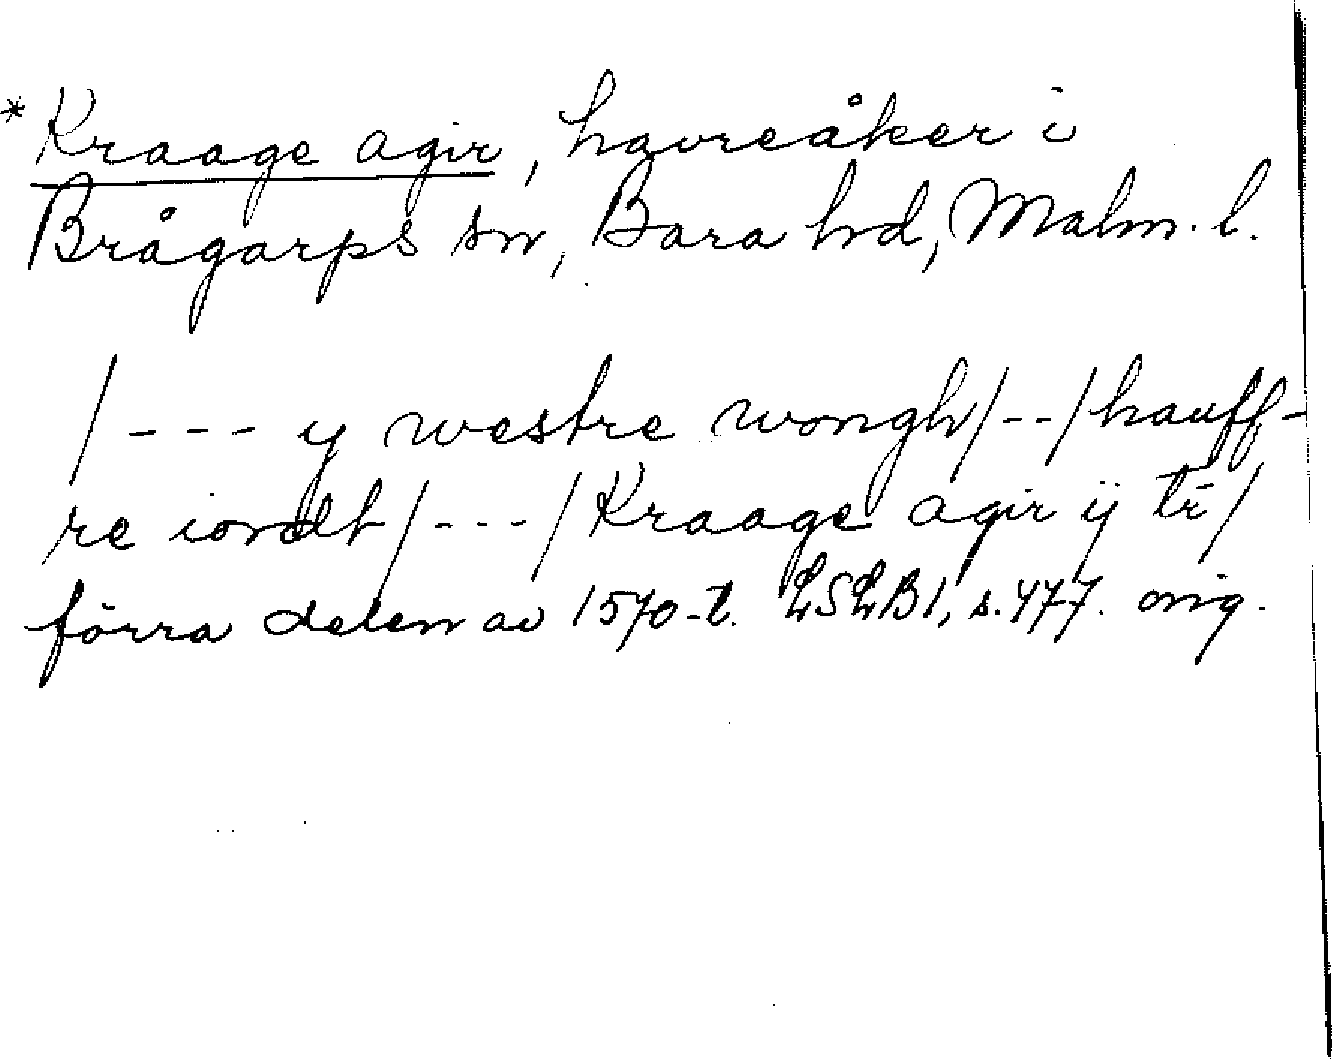 *Kraage agir, havreåker i
Brågarps sn, Bara hd, Malm. l.
/--- y westre wongh/--/hauff-
re iordt/---/Kraage agir ij tr̄/
förra delen av 1570-t. LSLB1, s. 477. orig.